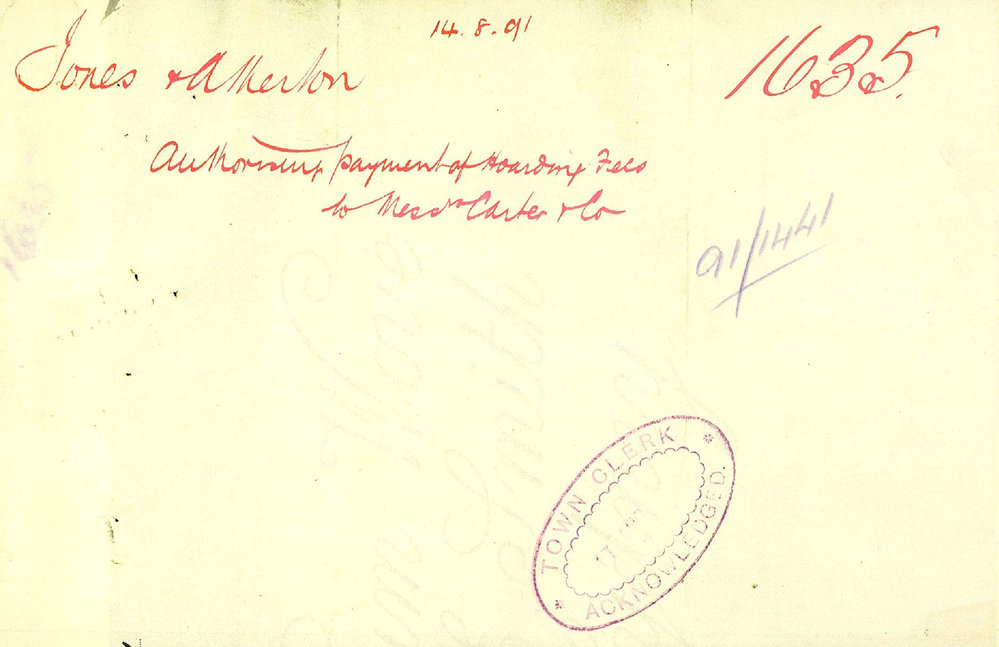 14.8.91
Jones & Atherton
1635.
Authorising payment of Hoarding Fees
to Messrs Carter & Co
91/1441
* TOWN CLERK *
17
ACKNOWLEDGED.